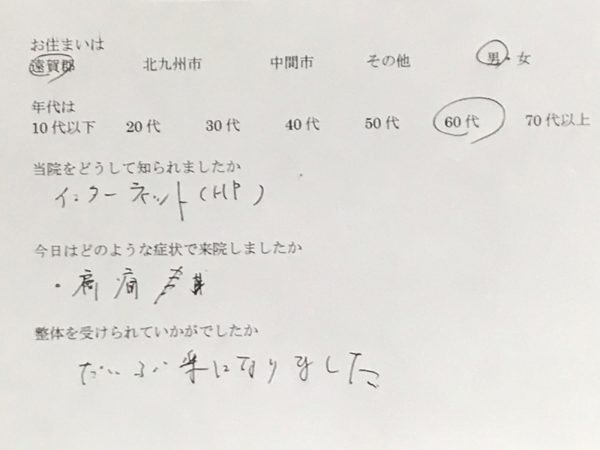 お住まいは
遠賀郡 北九州市 中間市 その他 男・女
年代は
10代以下 20代 30代 40代 50代 60代 70代以上
当院をどうして知られましたか
インターネット(HP)
今日はどのような症状で来院しましたか
・肩痛
整体を受けられていかがでしたか
だいぶ楽になりました